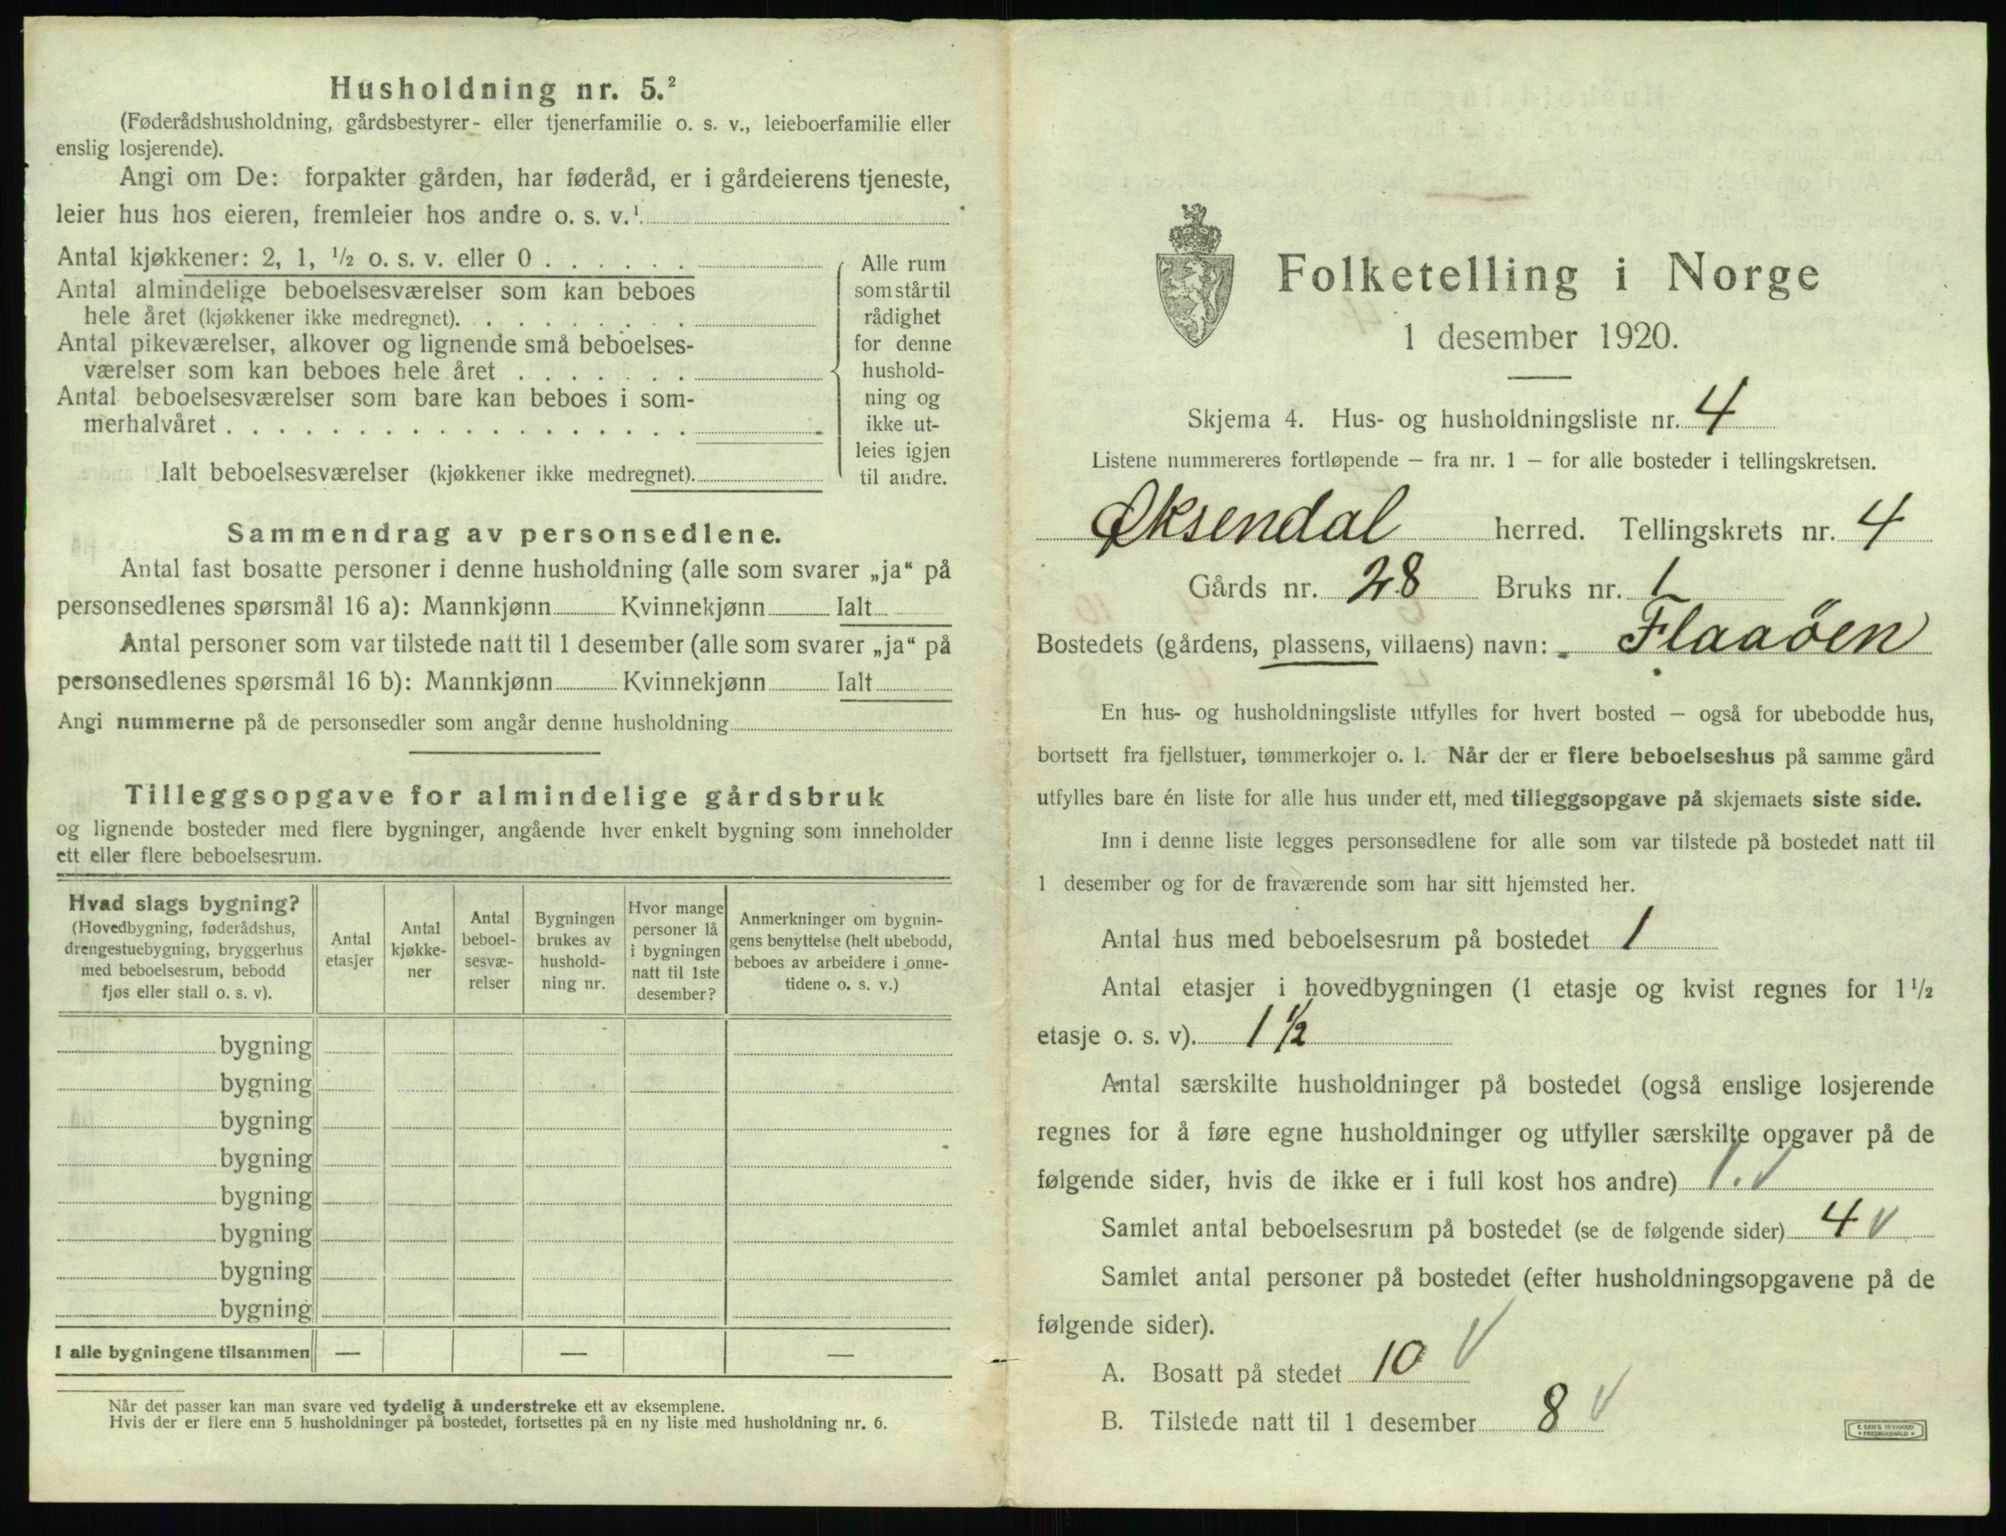 Husholdning nr. 5.²
(Føderådshusholdning, gårdsbestyrer- eller tjenerfamilie o. s. v., leieboerfamilie eller
enslig losjerende).
Angi om De: forpakter gården, har føderåd, er i gårdeierens tjeneste,
leier hus hos eieren, fremleier hos andre o. s. v.¹
Antal kjøkkener: 2, 1, ½ o. s. v. eller 0 . . . . . .
Antal almindelige beboelsesværelser som kan beboes
hele året (kjøkkener ikke medregnet). . . . . . . . .
Antal pikeværelser, alkover og lignende små beboelses-
værelser som kan beboes hele året . . . . . . .
Antal beboelsesværelser som bare kan beboes i som-
merhalvåret . . . . . . . . . . . . . . . . . .
Ialt beboelsesværelser (kjøkkener ikke medregnet).
Alle rum
som står til
rådighet
for denne
hushold-
ning og
ikke ut-
leies igjen
til andre.
Sammendrag av personsedlene.
Antal fast bosatte personer i denne husholdning (alle som svarer „ja“ på
personsedlenes spørsmål 16 a): Mannkjønn Kvinnekjønn Ialt
Antal personer som var tilstede natt til 1 desember (alle som svarer „ja“ på
personsedlenes spørsmål 16 b): Mannkjønn Kvinnekjønn Ialt
Angi nummerne på de personsedler som angår denne husholdning
Tilleggsopgave for almindelige gårdsbruk
og lignende bosteder med flere bygninger, angående hver enkelt bygning som inneholder
ett eller flere beboelsesrum.
Hvad slags bygning?
(Hovedbygning, føderådshus,
drengestuebygning, bryggerhus
med beboelsesrum, bebodd
fjøs eller stall o. s. v).
Antal
etasjer
Antal
kjøkke-
ner
Antal
beboel-
sesvæ-
relser
Bygningen
brukes av
hushold-
ning nr.
Hvor mange
personer lå
i bygningen
natt til 1ste
desember?
Anmerkninger om bygnin-
gens benyttelse (helt ubebodd,
beboes av arbeidere i onne-
tidene o. s. v.)
bygning
bygning
bygning
bygning
bygning
bygning
bygning
bygning
I alle bygningene tilsammen — — —
Når det passer kan man svare ved tydelig å understreke ett av eksemplene.
Hvis der er flere enn 5 husholdninger på bostedet, fortsettes på en ny liste med husholdning nr. 6.
Folketelling i Norge
1 desember 1920.
Skjema 4. Hus- og husholdningsliste nr. 4
Listene nummereres fortløpende — fra nr. 1 — for alle bosteder i tellingskretsen.
Øksendal herred. Tellingskrets nr. 4
Gårds nr. 28 Bruks nr. 1
Bostedets (gårdens, plassens, villaens) navn: Flaaøen
En hus- og husholdningsliste utfylles for hvert bosted — også for ubebodde hus,
bortsett fra fjellstuer, tømmerkojer o. l. Når der er flere beboelseshus på samme gård
utfylles bare én liste for alle hus under ett, med tilleggsopgave på skjemaets siste side.
Inn i denne liste legges personsedlene for alle som var tilstede på bostedet natt til
1 desember og for de fraværende som har sitt hjemsted her.
Antal hus med beboelsesrum på bostedet 1
Antal etasjer i hovedbygningen (1 etasje og kvist regnes for 1½
etasje o. s. v). 1 ½
Antal særskilte husholdninger på bostedet (også enslige losjerende
regnes for å føre egne husholdninger og utfyller særskilte opgaver på de
følgende sider, hvis de ikke er i full kost hos andre) 1. √
Samlet antal beboelsesrum på bostedet (se de følgende sider) 4 √
Samlet antal personer på bostedet (efter husholdningsopgavene på de
følgende sider).
A. Bosatt på stedet 10 √
B. Tilstede natt til 1 desember 8 √